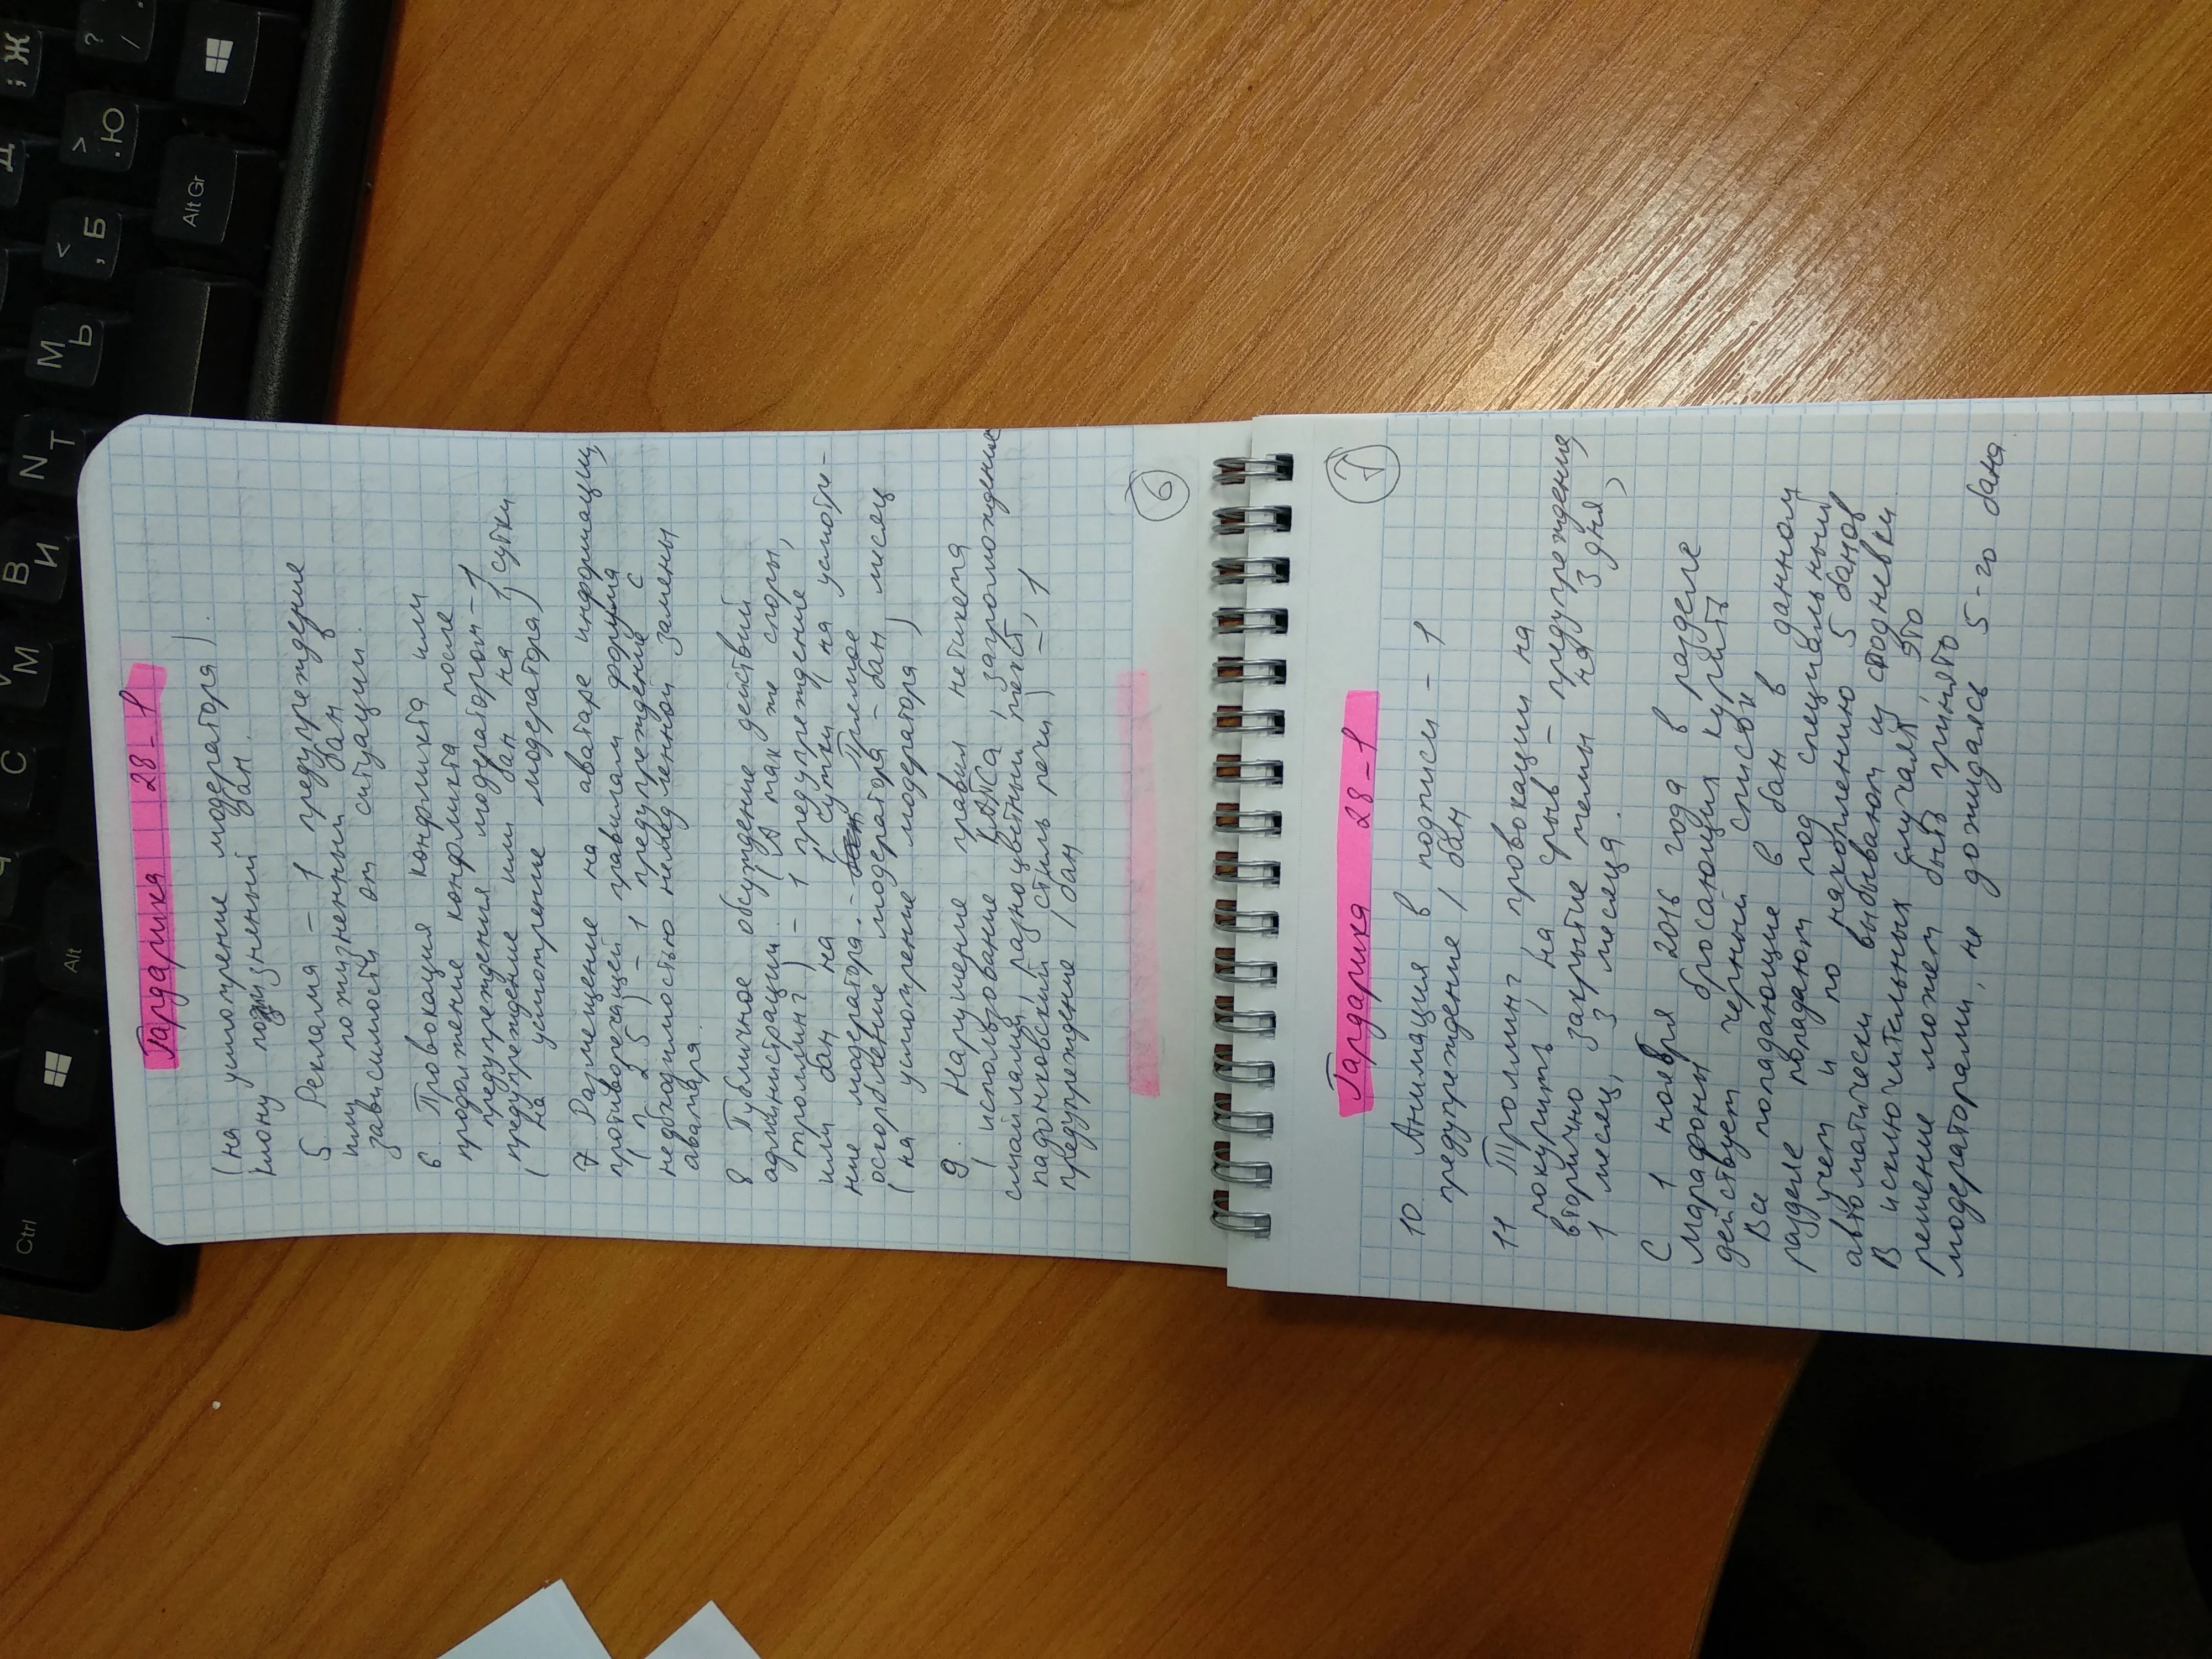 Гардарика 28-1
(на усмотрение модератора).
Клону пожизненный бан.
5 Реклама - 1 предупреждение
или пожизненный бан в
зависимости от ситуации.
6. Провокация конфликта или
продолжение конфликта после
предупреждения модератором - 1
предупреждение или бан на 1 сутки
(на усмотрение модератора)
7 Размещение на аватаре информации,
противоречащей правилам форума
(п 2 5) - 1 предупреждение с
необходимостью немедленной замены
аватара.
8 Публичное обсуждение действий
администрации. (а так же споры,
троллинг) - 1 предупреждение
или бан на 1 сутки (на усмотре-
ние модератора. - Прямое
оскорбление модератора - бан, месяц
(на усмотрение модератора)
9. Нарушение правил нетикета
(использование капса, загромождение
смайлами, разноцветный текст,
падонковский стиль речи) - 1
предупреждение / бан
6
Гардарика 28-1
7
10 Анимация в подписи - 1
предупреждение / бан
11 Троллинг, провокации на
покурить, на срыв - предупреждение,
вторично закрытие темы на 3 дня,
1 месяц, 3 месяца.
С 1 ноября 2016 года в разделе
Марафоны бросающих курить
действует черный список
Все попадающие в бан в данном
разделе попадают под специальный
учет и по накоплению 5 банов
автоматически выбывают из стодневки
В исключительных случаях это
решение может быть принято
модераторами, не дожидаясь 5-го бана
Ctrl
Alt
Alt Gr
С
М
V
И
В
Т
N
Ь
М
Б
,
<
Ю
.
>
/
?
Ж
;
Д